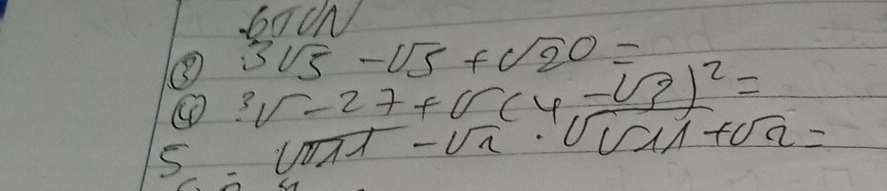 ③ 3√5 - √5 + √20 =
④ ³√-27 + √(4 - √3)² =
5 √√11 - √2 · √√11 + √2 =